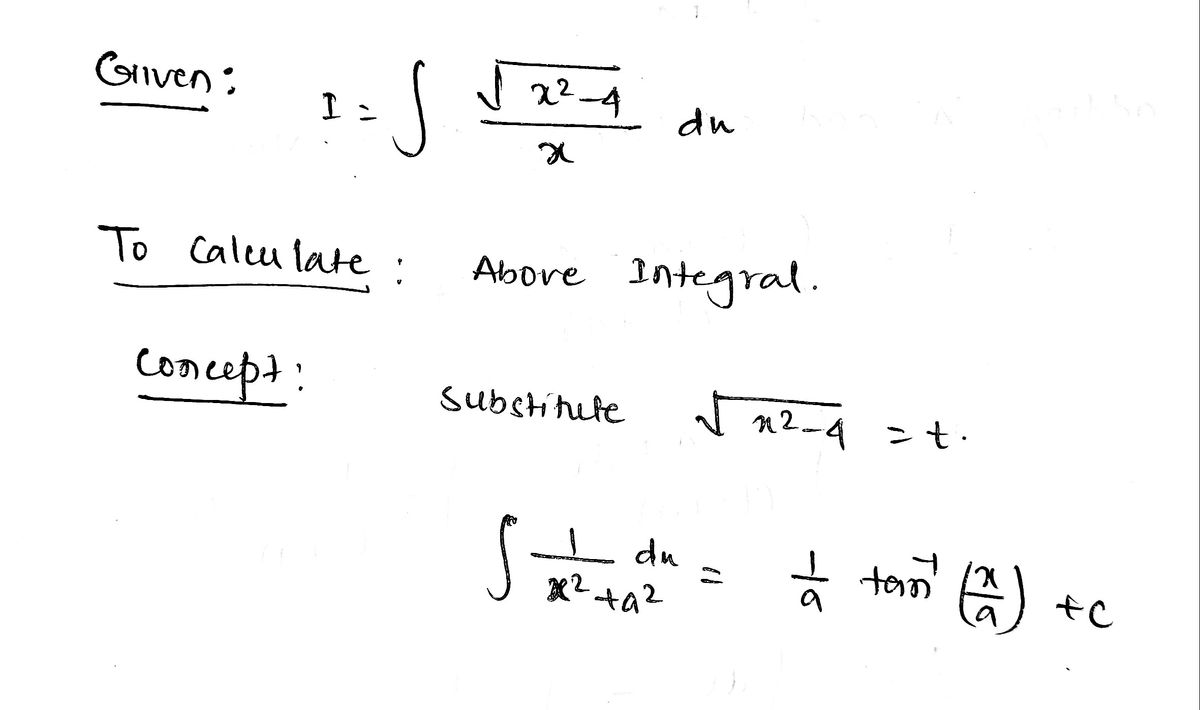 Given: I = ∫ √(x²-4) / x dx
To Calculate : Above Integral.
Concept: substitute √(x²-4) = t.
∫ 1/(x²+a²) dx = 1/a tan⁻¹ (x/a) + c